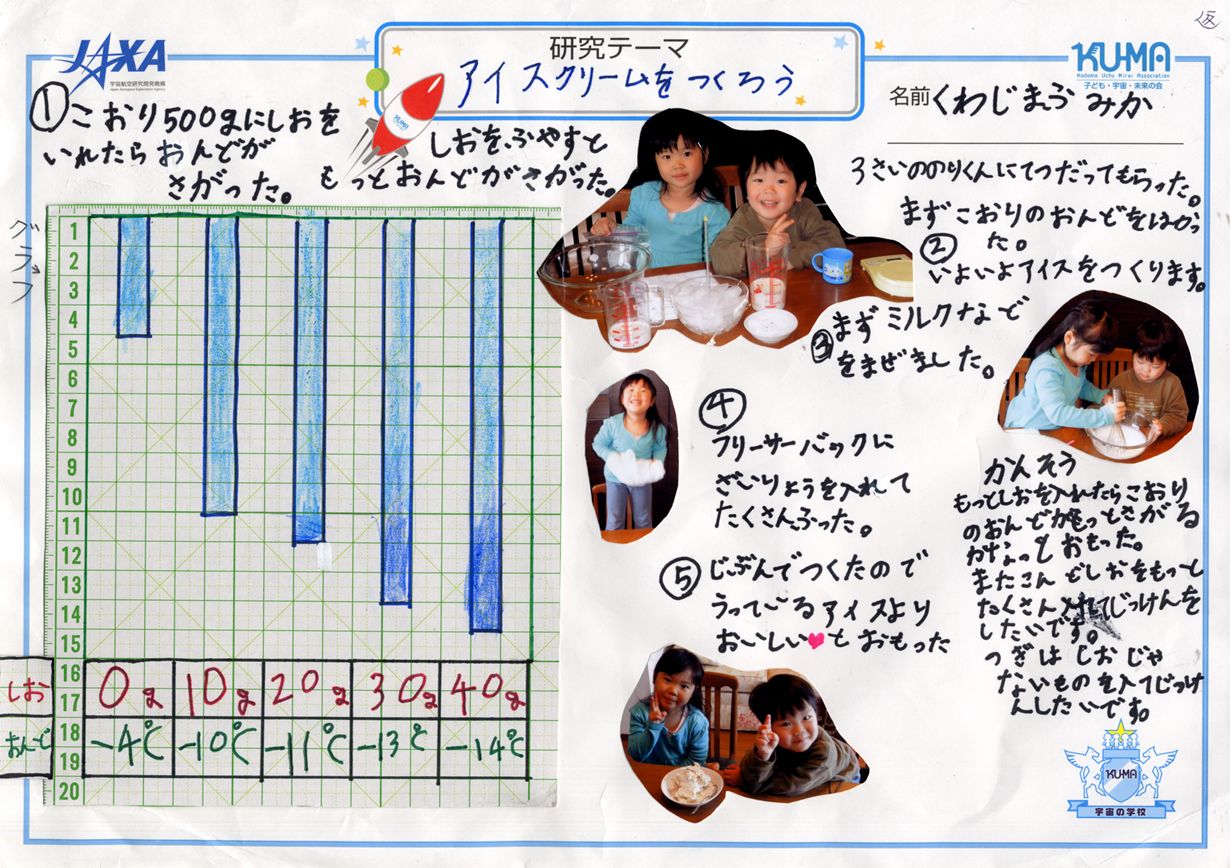 JAXA
宇宙航空研究開発機構
Japan Aerospace Exploration Agency
研究テーマ
アイスクリームをつくろう
KUMA
Kodomo Uchu Mirai Association
子ども・宇宙・未来の会
名前 くわじまゆう みか
KUMA
①こおり500gにしおを
いれたらおんどが
さがった。
しおをふやすと
もっとおんどがさがった。
グラフ
1
2
3
4
5
6
7
8
9
10
11
12
13
14
15
16
17
18
19
20
しお 0g 10g 20g 30g 40g
おんど -4℃ -10℃ -11℃ -13℃ -14℃
3さいののりくんにてつだってもらった。
まずこおりのおんどをはかっ
た。
②いよいよアイスをつくります。
③まずミルクなど
をまぜました。
④
フリーサーバックに
ざいりょうを入れて
たくさんふった。
⑤じぶんでつくたので
うっているアイスより
おいしい♥とおもった
かんそう
もっとしおを入れたらこおり
のおんどがもっとさがる
かなっとおもった。
またこんどしおをもっと
たくさん入れてじっけんを
したいです。
つぎはしおじゃ
ないものを入てじっけ
んしたいです。
KUMA
宇宙の学校